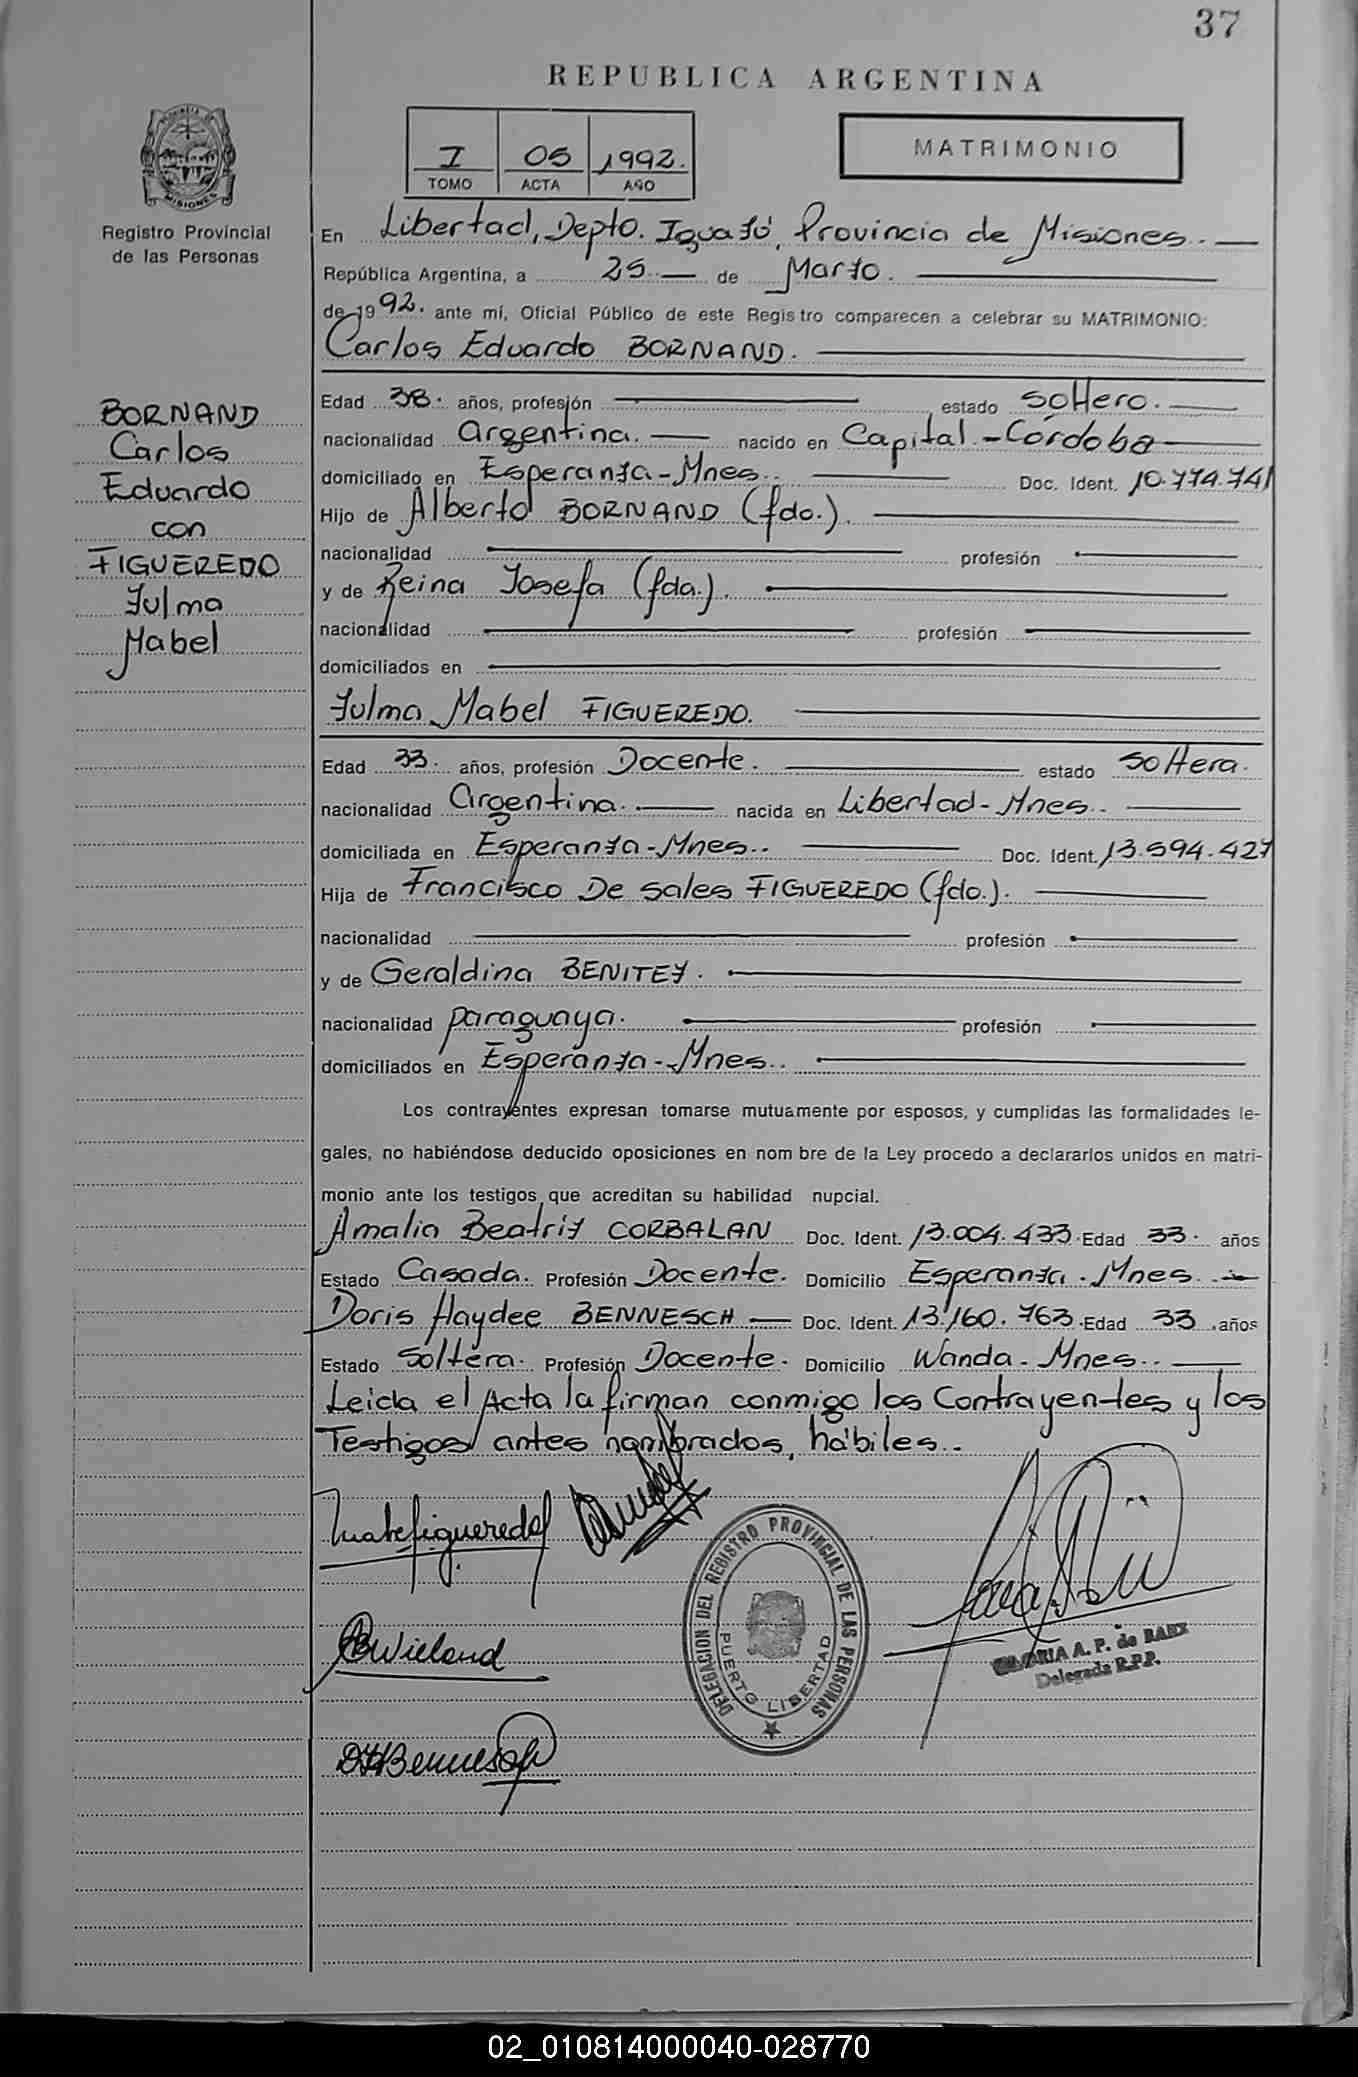 37
REPUBLICA ARGENTINA
I 05 1992.
TOMO ACTA AÑO
MATRIMONIO
PROVINCIA DE MISIONES
Registro Provincial
de las Personas
BORNAND
Carlos
Eduardo
con
FIGUEREDO
Zulma
Mabel
En Libertad, Depto. Iguazú, Provincia de Misiones.
República Argentina, a 25 de Marzo.
de 1992. ante mí, Oficial Público de este Registro comparecen a celebrar su MATRIMONIO:
Carlos Eduardo BORNAND.
Edad 38. años, profesión estado soltero.
nacionalidad argentina. nacido en Capital - Córdoba
domiciliado en Esperanza - Mnes.. Doc. Ident. 10.774.741
Hijo de Alberto BORNAND (fdo.).
nacionalidad profesión
y de Reina Josefa (fda.).
nacionalidad profesión
domiciliados en
Zulma Mabel FIGUEREDO.
Edad 33. años, profesión Docente. estado soltera.
nacionalidad argentina. nacida en Libertad - Mnes..
domiciliada en Esperanza - Mnes.. Doc. Ident. 13.594.427
Hija de Francisco De Sales FIGUEREDO (fdo.).
nacionalidad profesión
y de Geraldina BENITEZ.
nacionalidad paraguaya. profesión
domiciliados en Esperanza - Mnes..
Los contrayentes expresan tomarse mutuamente por esposos, y cumplidas las formalidades le-
gales, no habiéndose deducido oposiciones en nombre de la Ley procedo a declararlos unidos en matri-
monio ante los testigos que acreditan su habilidad nupcial.
Amalia Beatriz CORBALAN Doc. Ident. 13.004.433. Edad 33. años
Estado Casada. Profesión Docente. Domicilio Esperanza - Mnes..
Doris Haydee BENNESCH Doc. Ident. 13.160.763. Edad 33 años
Estado Soltera. Profesión Docente. Domicilio Wanda - Mnes..
Leida el Acta la firman conmigo los Contrayentes y los
Testigos antes nombrados, hábiles..
ABWieland
DHBennesch
DELEGACION DEL REGISTRO PROVINCIAL DE LAS PERSONAS
PUERTO LIBERTAD
GLORIA A. P. de BAEZ
Delegada R.P.P.
02_010814000040-028770